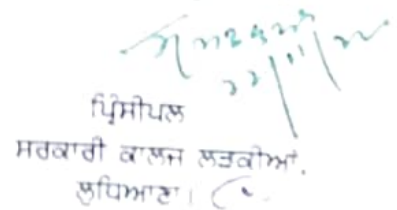 ਪ੍ਰਿੰਸੀਪਲ
ਸਰਕਾਰੀ ਕਾਲਜ ਲੜਕੀਆਂ,
ਲੁਧਿਆਣਾ।